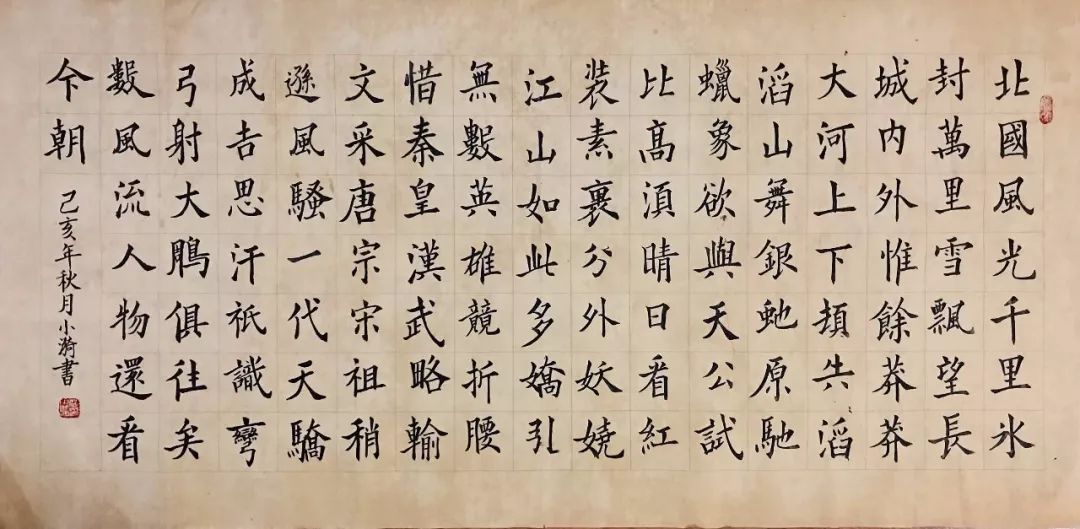 北國風光千里氷
封萬里雪飄望長
城内外惟餘莽莽
大河上下頓失滔
滔山舞銀虵原馳
蠟象欲與天公試
比髙湏晴日看紅
裝素裹分外妖嬈
江山如此多嬌引
無數英雄競折腰
惜秦皇漢武略輸
文采唐宗宋祖稍
遜風騷一代天驕
成吉思汗祇識彎
弓射大鵰俱往矣
數風流人物還看
今朝
己亥年秋月小漪書